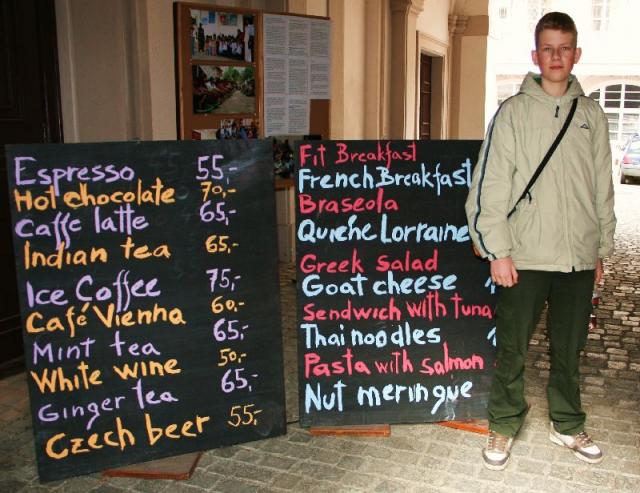 Espresso 55,-
Hot chocolate 70,-
Caffe latte 65,-
Indian tea 65,-
Ice Coffee 75,-
Café Vienna 60,-
Mint tea 65,-
White wine 50,-
Ginger tea 65,-
Czech beer 55,-
Fit Breakfast
French Breakfast
Braseola
Quiche Lorraine
Greek Salad
Goat cheese
Sendwich with tuna
Thai noodles
Pasta with salmon
Nut meringue